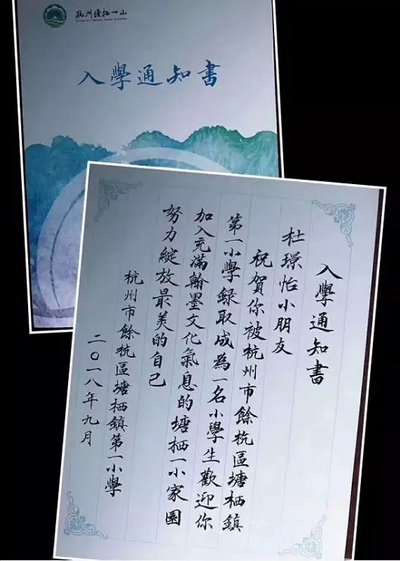 杭州塘栖一小
入學通知書
入學通知書
杜璟怡小朋友
祝賀你被杭州市餘杭區塘栖鎮
第一小學録取成為一名小學生歡迎你
加入充滿翰墨文化氣息的塘栖一小家園
努力綻放最美的自己
杭州市餘杭區塘栖鎮第一小學
二〇一八年九月